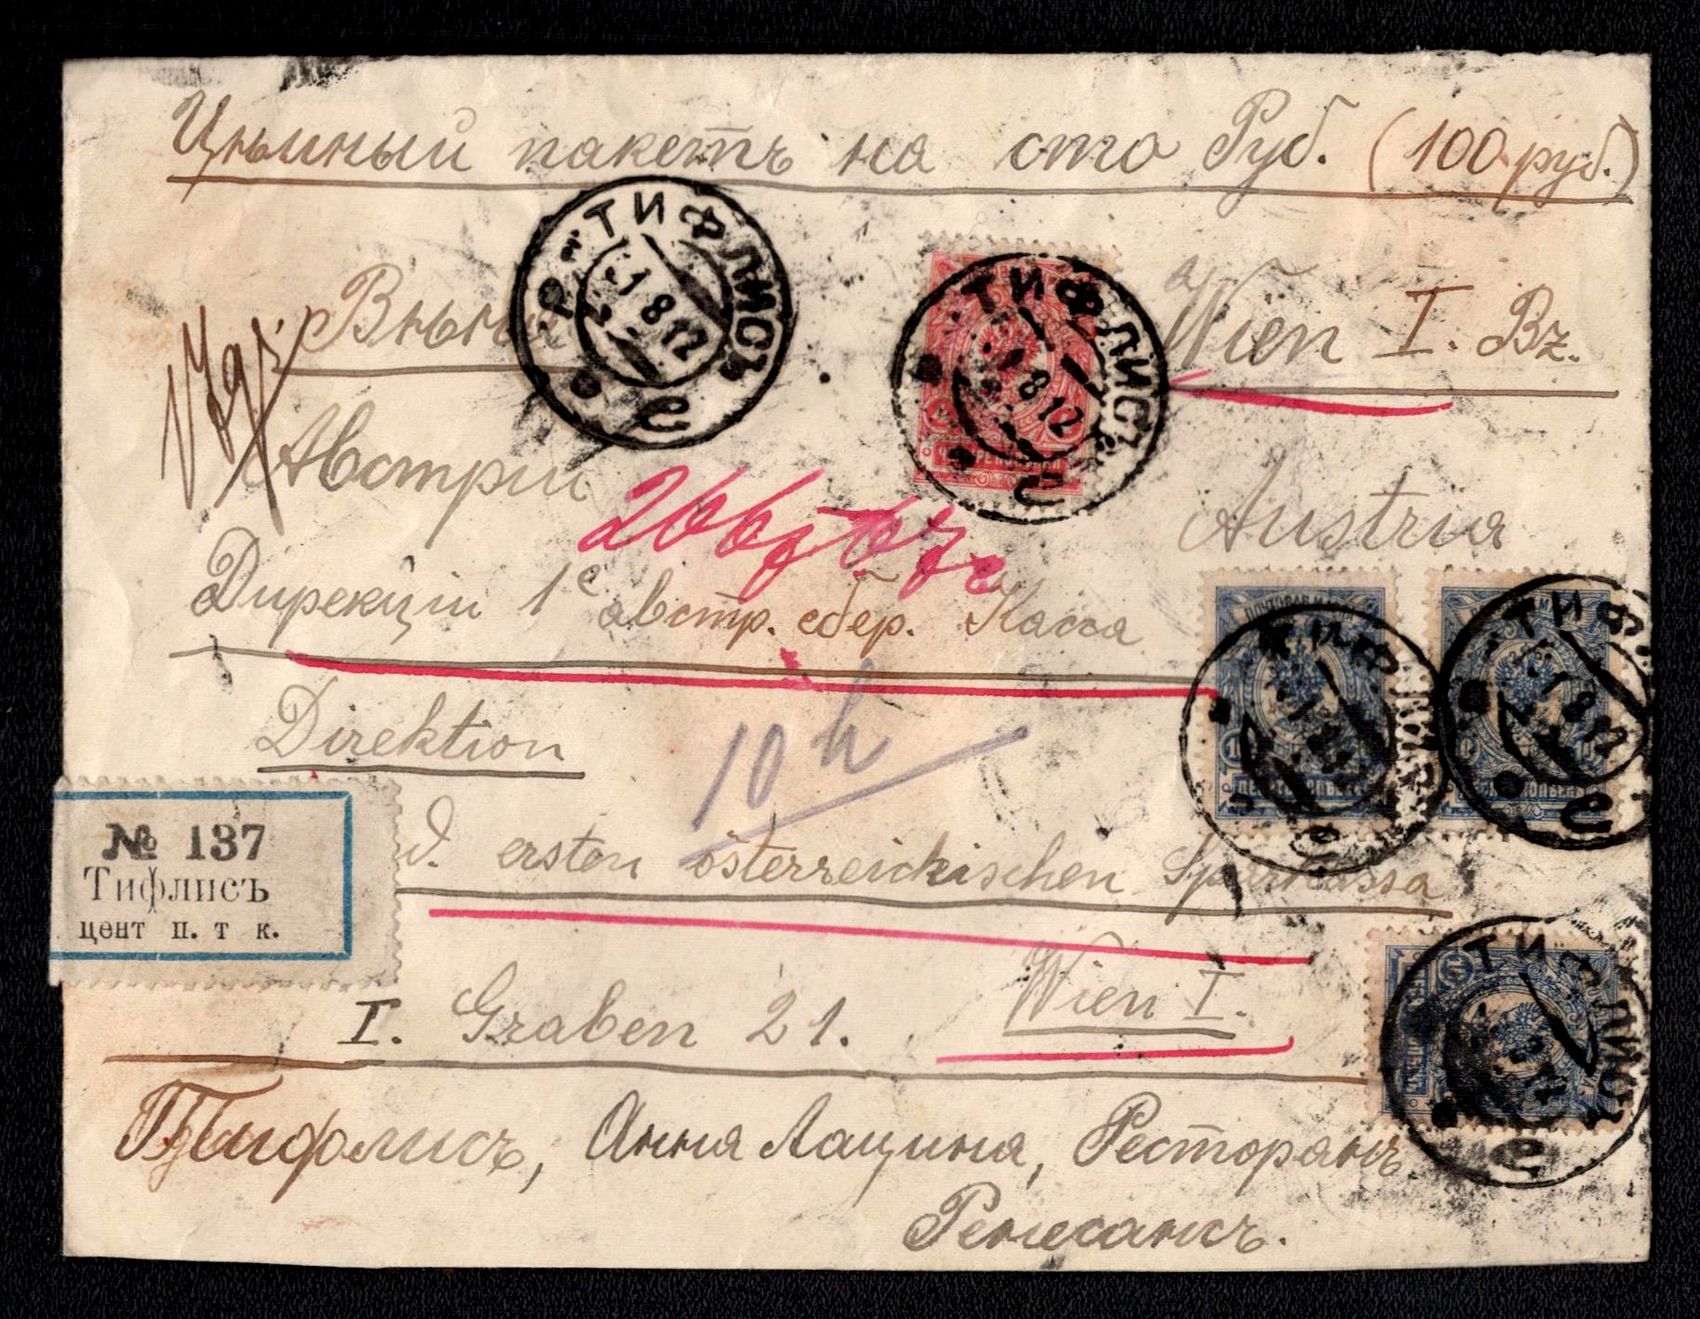 Цѣнный пакетъ на сто Руб. (100 руб.)
ТИФЛИСЪ
1 8 12
ТИФЛИСЪ
1 8 12
Wien I. Bz.
Австріи
Austria
Дирекціи 1е австр. сбер. Касса
Direktion
10 h
d. ersten österreichischen Sparkassa
№ 137
Тифлисъ
цент п. т к.
I. Graben 21.
Wien I.
ТИФЛИСЪ
ТИФ
1 8 12
ТИФЛИСЪ
Тифлисъ, Анна Лацина, Ресторанъ
Ренесансъ.